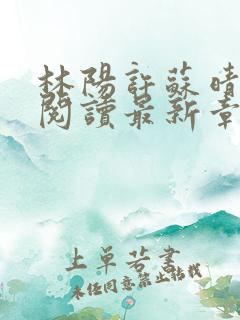 林陽許蘇晴
閱讀最新章
上單若書
未經同意禁止轉載